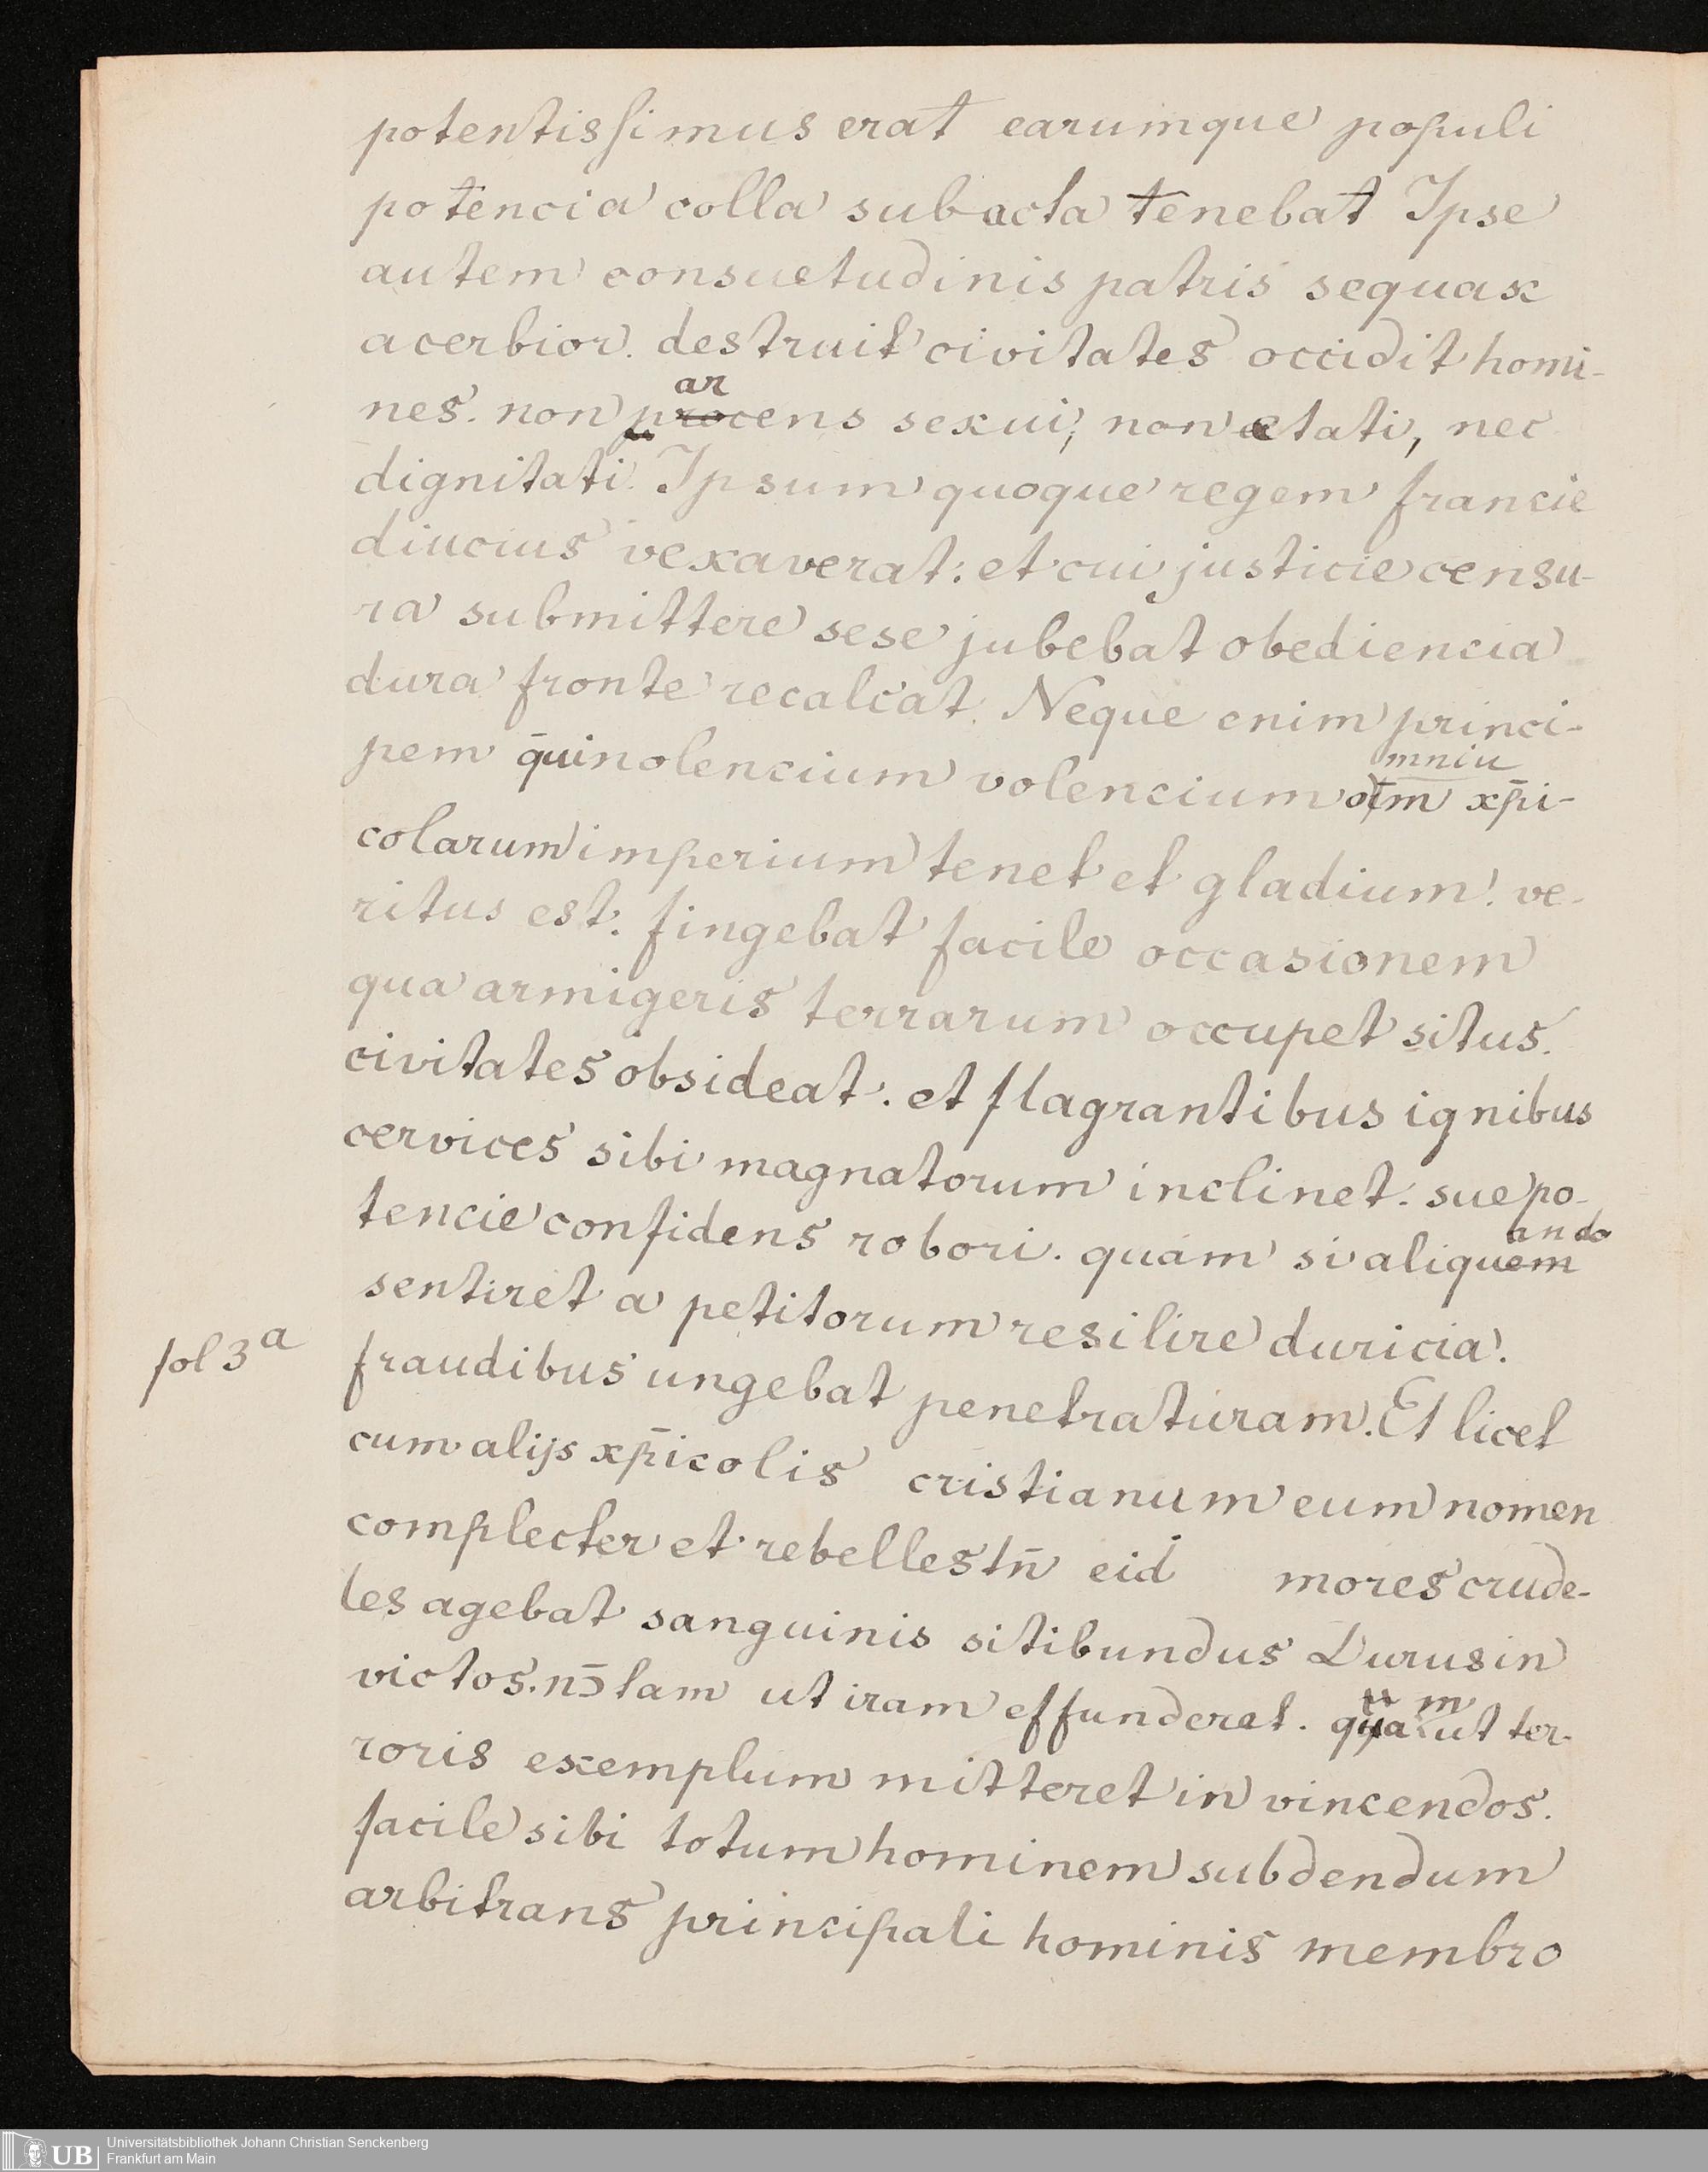 potentissimus erat earumque populi
potencia colla subacta tenebat Ipse
autem consuetudinis patris sequax
acerbior. destruit civitates occidit homi-
ar
nes. non procens sexui, non etati, nec
dignitati. Ipsum quoque regem francie
diucius vexaverat: et cui justicie censu-
ra submittere sese jubebat obediencia
dura fronte recalcat. Neque enim princi-
mniu
pem q̄uinolencium volencium om xp̄i-
colarum imperium tenet et gladium. ve-
ritus est: fingebat facile occasionem
qua armigeris terrarum occupet situs.
civitates obsideat. et flagrantibus ignibus
cervices sibi magnatorum inclinet. sue po-
tencie confidens robori. quam si aliquem
ando
sentiret a petitorum resilire duricia.
fol 3a fraudibus ungebat penetraturam. Et licet
cum alijs xp̄icolis cristianum eum nomen
complecter et rebelles tn̄ eid mores crude-
les agebat sanguinis sitibundus Durus in
victos. nō tam ut iram effunderet. quam ut ter-
roris exemplum mitteret in vincendos.
facile sibi totum hominem subdendum
arbitrans principali hominis membro
UB Universitätsbibliothek Johann Christian Senckenberg
Frankfurt am Main